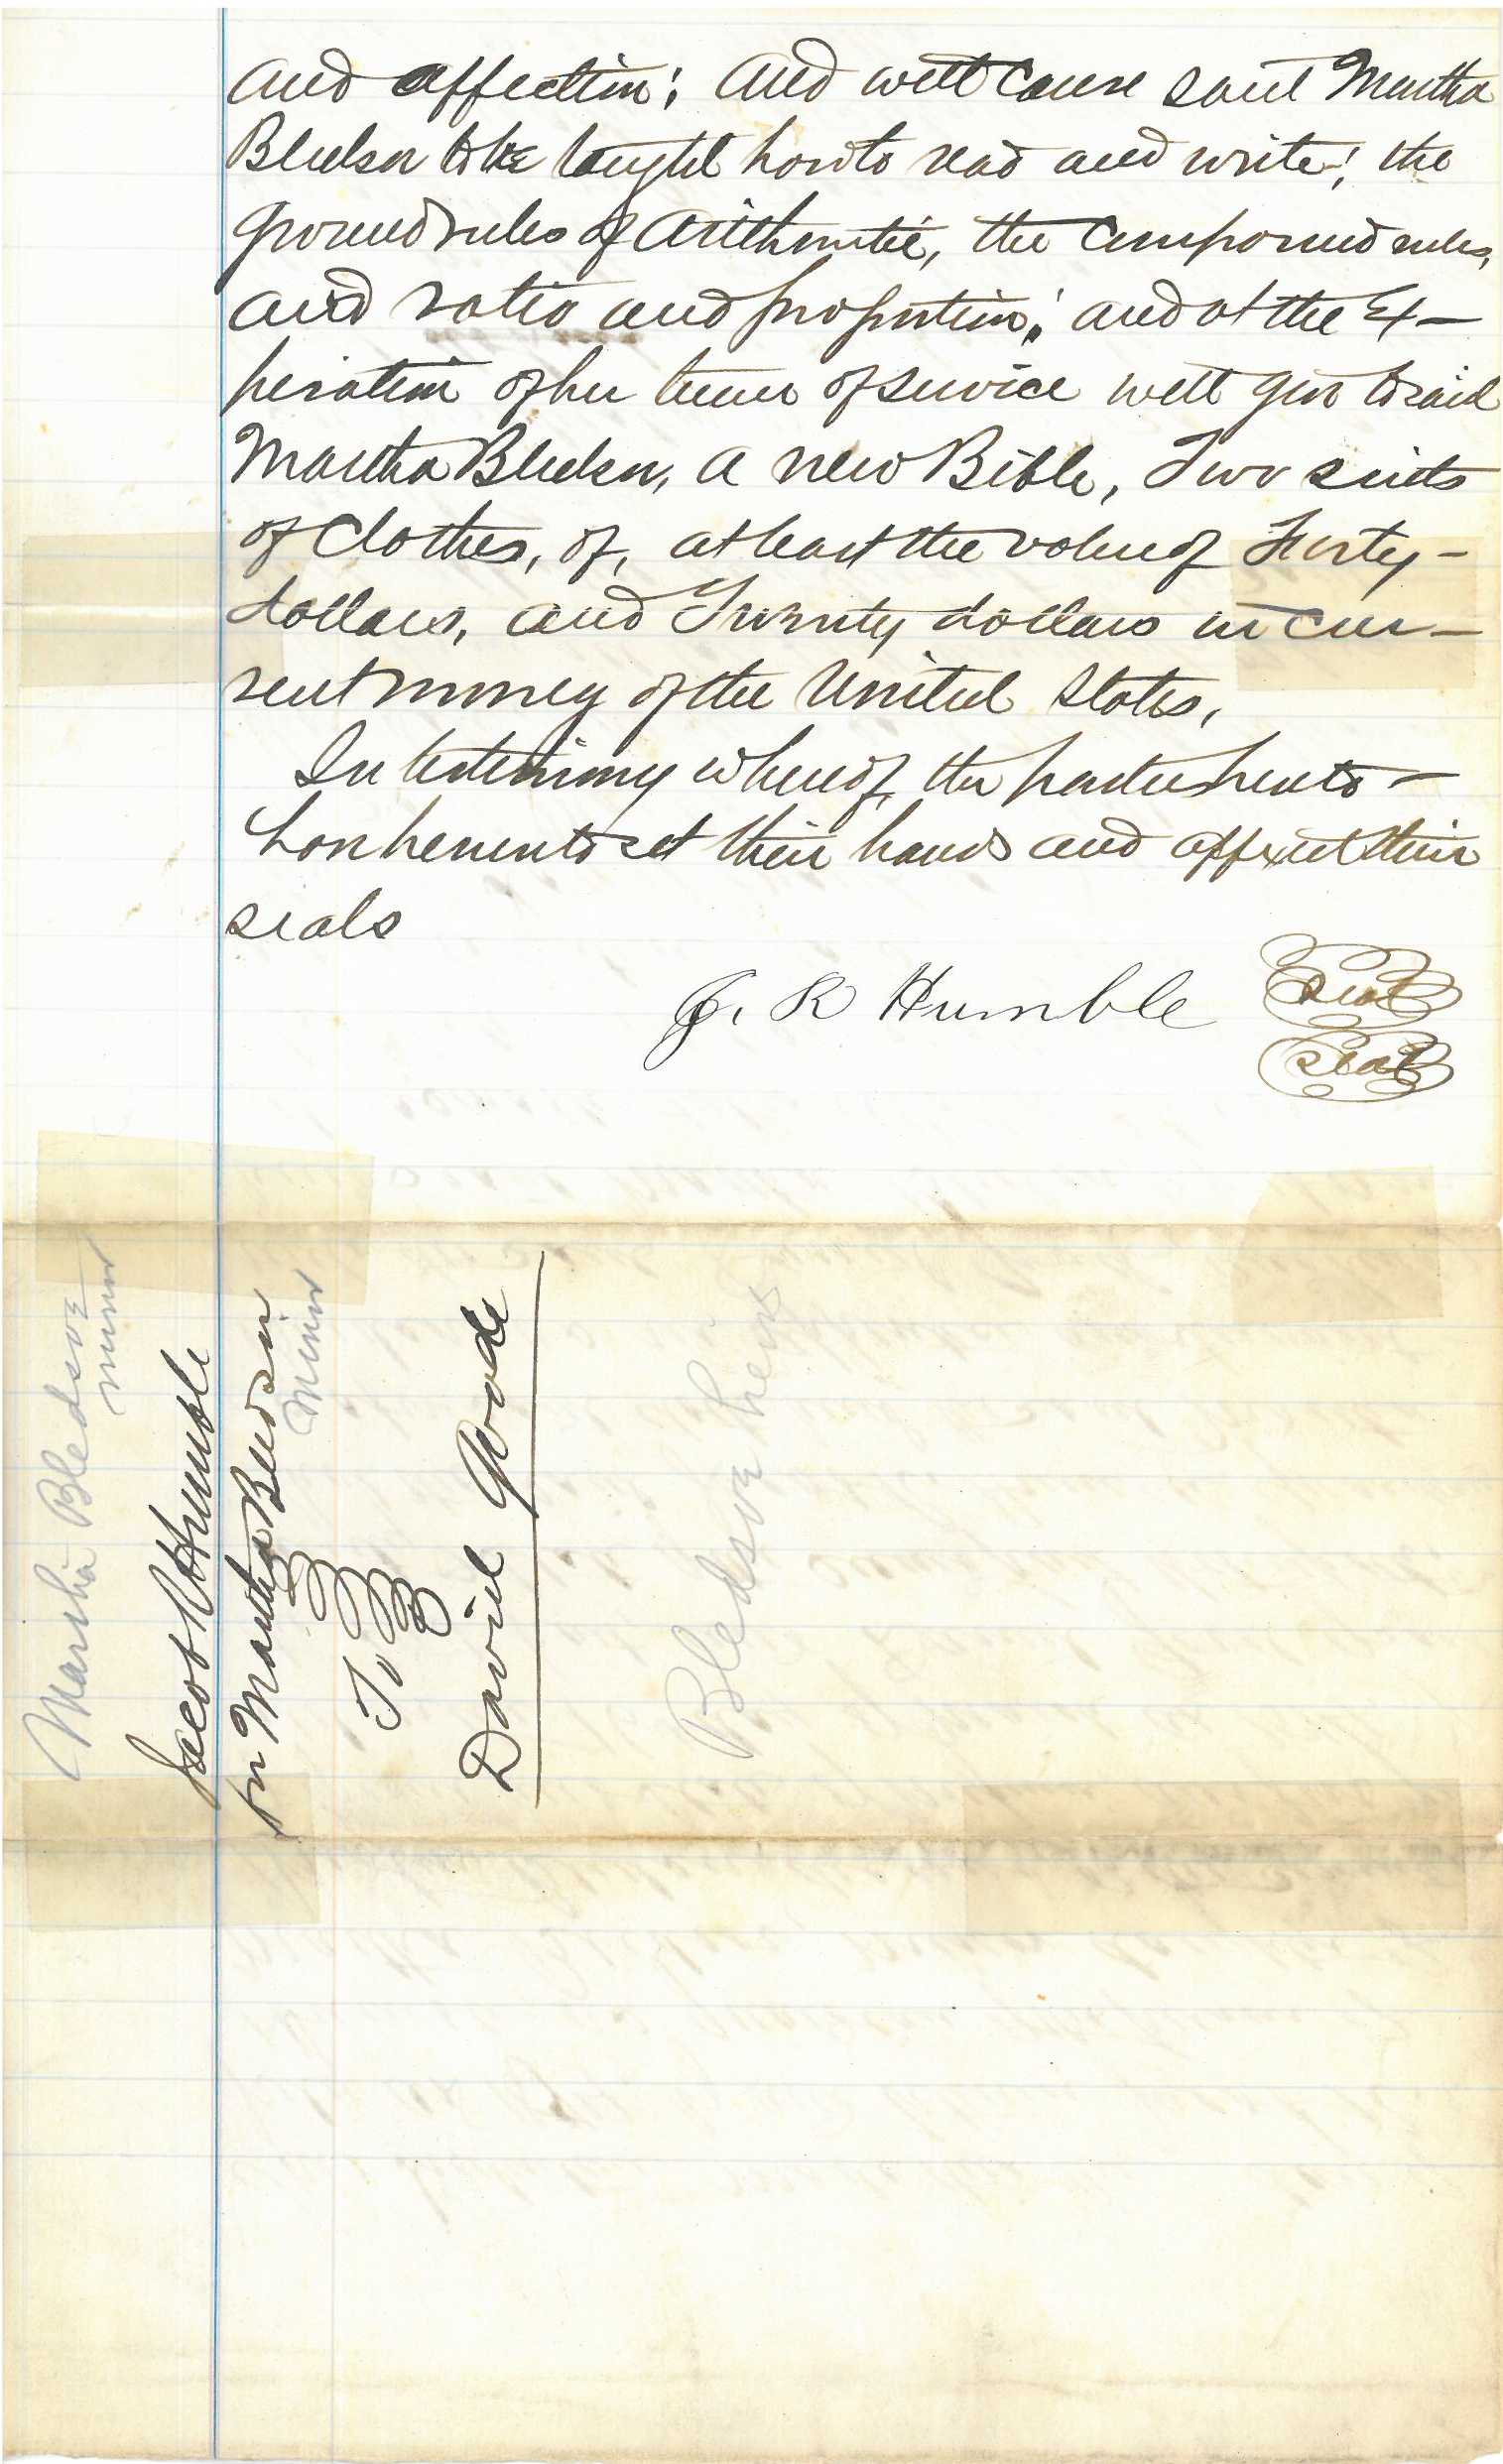 and affection; and will cause said Martha
Bledsoe to be taught how to read and write; the
ground rules of Arithmetic, the compound rules,
and ratio and proportion; and at the Ex-
piration of her term of service will give to said
Martha Bledsoe, a new Bible, Two suits
of Clothes, of, at least the value of Forty-
dollars, and Twenty dollars in cur-
rent money of the United States,
In testimony whereof, the parties hereto -
have hereunto set their hands and affixed their
seals
J. R Humble Seal
Seal
Martha Bledsoe
minor
Jacob R Humble
for Martha Bledsoe
Minor
To
David Goode
Bledsoe heirs